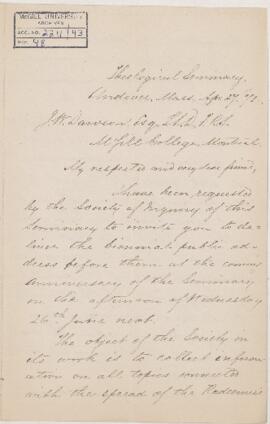 McGILL UNIVERSITY
ARCHIVES
ACC. NO. 2211/43
REF. 48
Theological Seminary,
Andover, Mass. Apr. 27, '71.
J. W. Dawson, Esq. LL.D. F.R.S.
McGill College, Montreal.
My respected and very dear friend,
I have been requested
by the Society of Inquiry of this
Seminary to invite you to de-
liver the biennial public ad-
dress before them at the coming
anniversary of the Seminary
on the afternoon of Wednesday
26th June next.
The object of the Society in
its work is to collect inform-
ation on all topics connected
with the spread of the Redeemer's